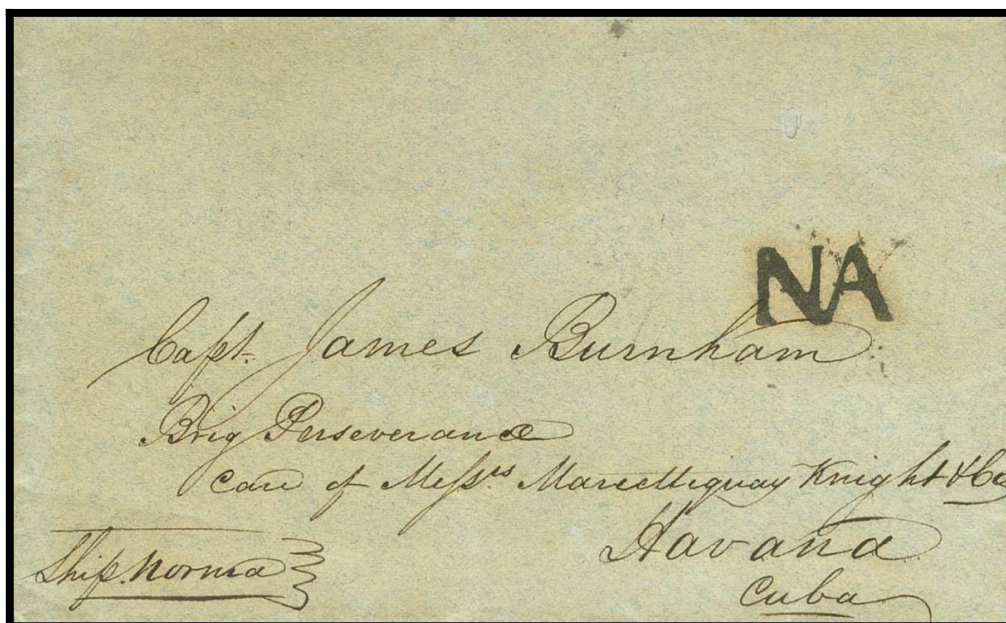 NA
Capt. James Burnham
Brig Perseverance
Care of Messrs Knight & Co
Havana
Cuba
Ship Norma